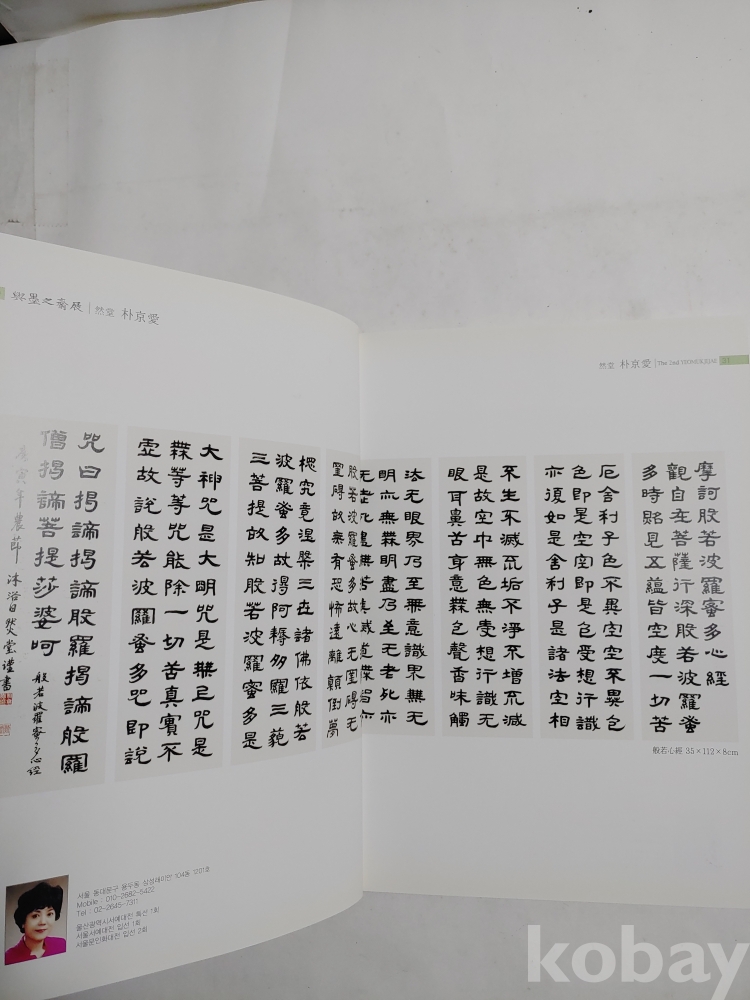 與墨之齋展 | 然堂 朴京愛
然堂 朴京愛 | The 2nd YEOMUKJIJAE 21
摩訶般若波羅蜜多心經
觀自在菩薩行深般若波羅蜜
多時照見五蘊皆空度一切苦
厄舍利子色不異空空不異色
色即是空空即是色受想行識
亦復如是舍利子是諸法空相
不生不滅不垢不淨不增不減
是故空中無色無受想行識无
眼耳鼻舌身意無色聲香味觸
法无眼界乃至無意識界無无
明亦無無明盡乃至无老死亦
无老死盡無苦集滅道無智亦
般若波羅蜜多故心无罣碍无
罣碍故無有恐怖遠離顛倒夢
想究竟涅槃三世諸佛依般若
波羅蜜多故得阿耨多羅三藐
三菩提故知般若波羅蜜多是
大神咒是大明咒是無上咒是
無等等咒能除一切苦真實不
虛故說般若波羅蜜多咒即說
咒曰揭諦揭諦般羅揭諦般羅
僧揭諦菩提莎婆呵
般若波羅蜜多心經
寅年農節 沐浴自然堂謹書
般若心經 35×112×8cm
서울 동대문구 용두동 삼성래미안 104동 1201호
Mobile : 010-2682-5422
Tel : 02-2645-7311
울산광역시서예대전 특선 1회
서울서예대전 입선 1회
서울문인화대전 입선 2회
kobay